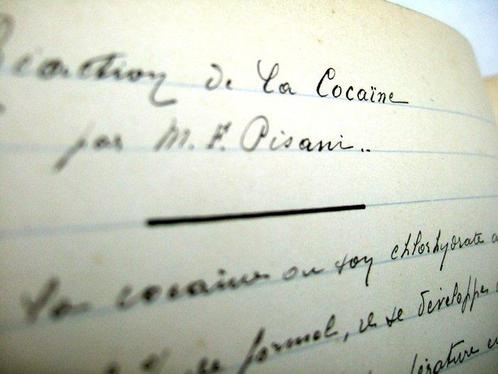 Réaction de la Cocaïne
par M. F. Pisani..
La cocaïne ou son chlorhydrate
de formol, il se développe